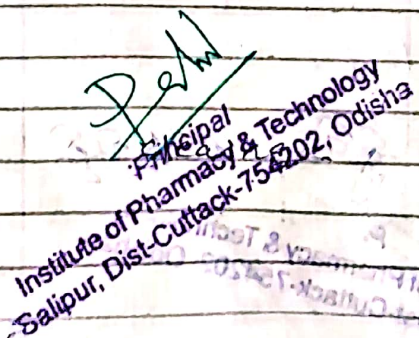 Principal
Institute of Pharmacy & Technology
Salipur, Dist-Cuttack-754202, Odisha